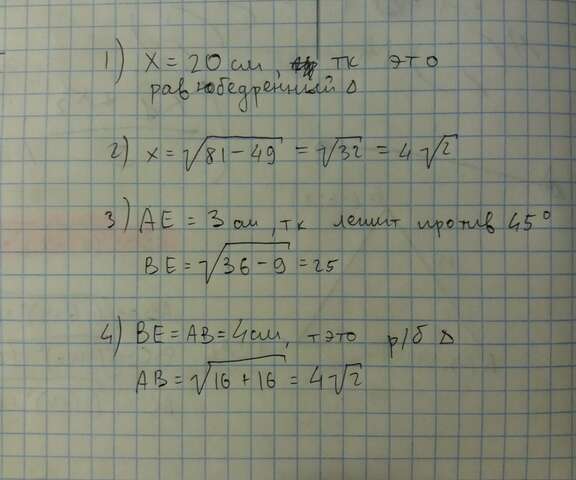 1) X = 20 см, тк это
равнобедренный Δ
2) x = √81-49 = √32 = 4√2
3) AE = 3 см, тк лежит против 45°
BE = √36-9 = 25
4) BE = AB = 4 см, тэто р/б Δ
AB = √16+16 = 4√2